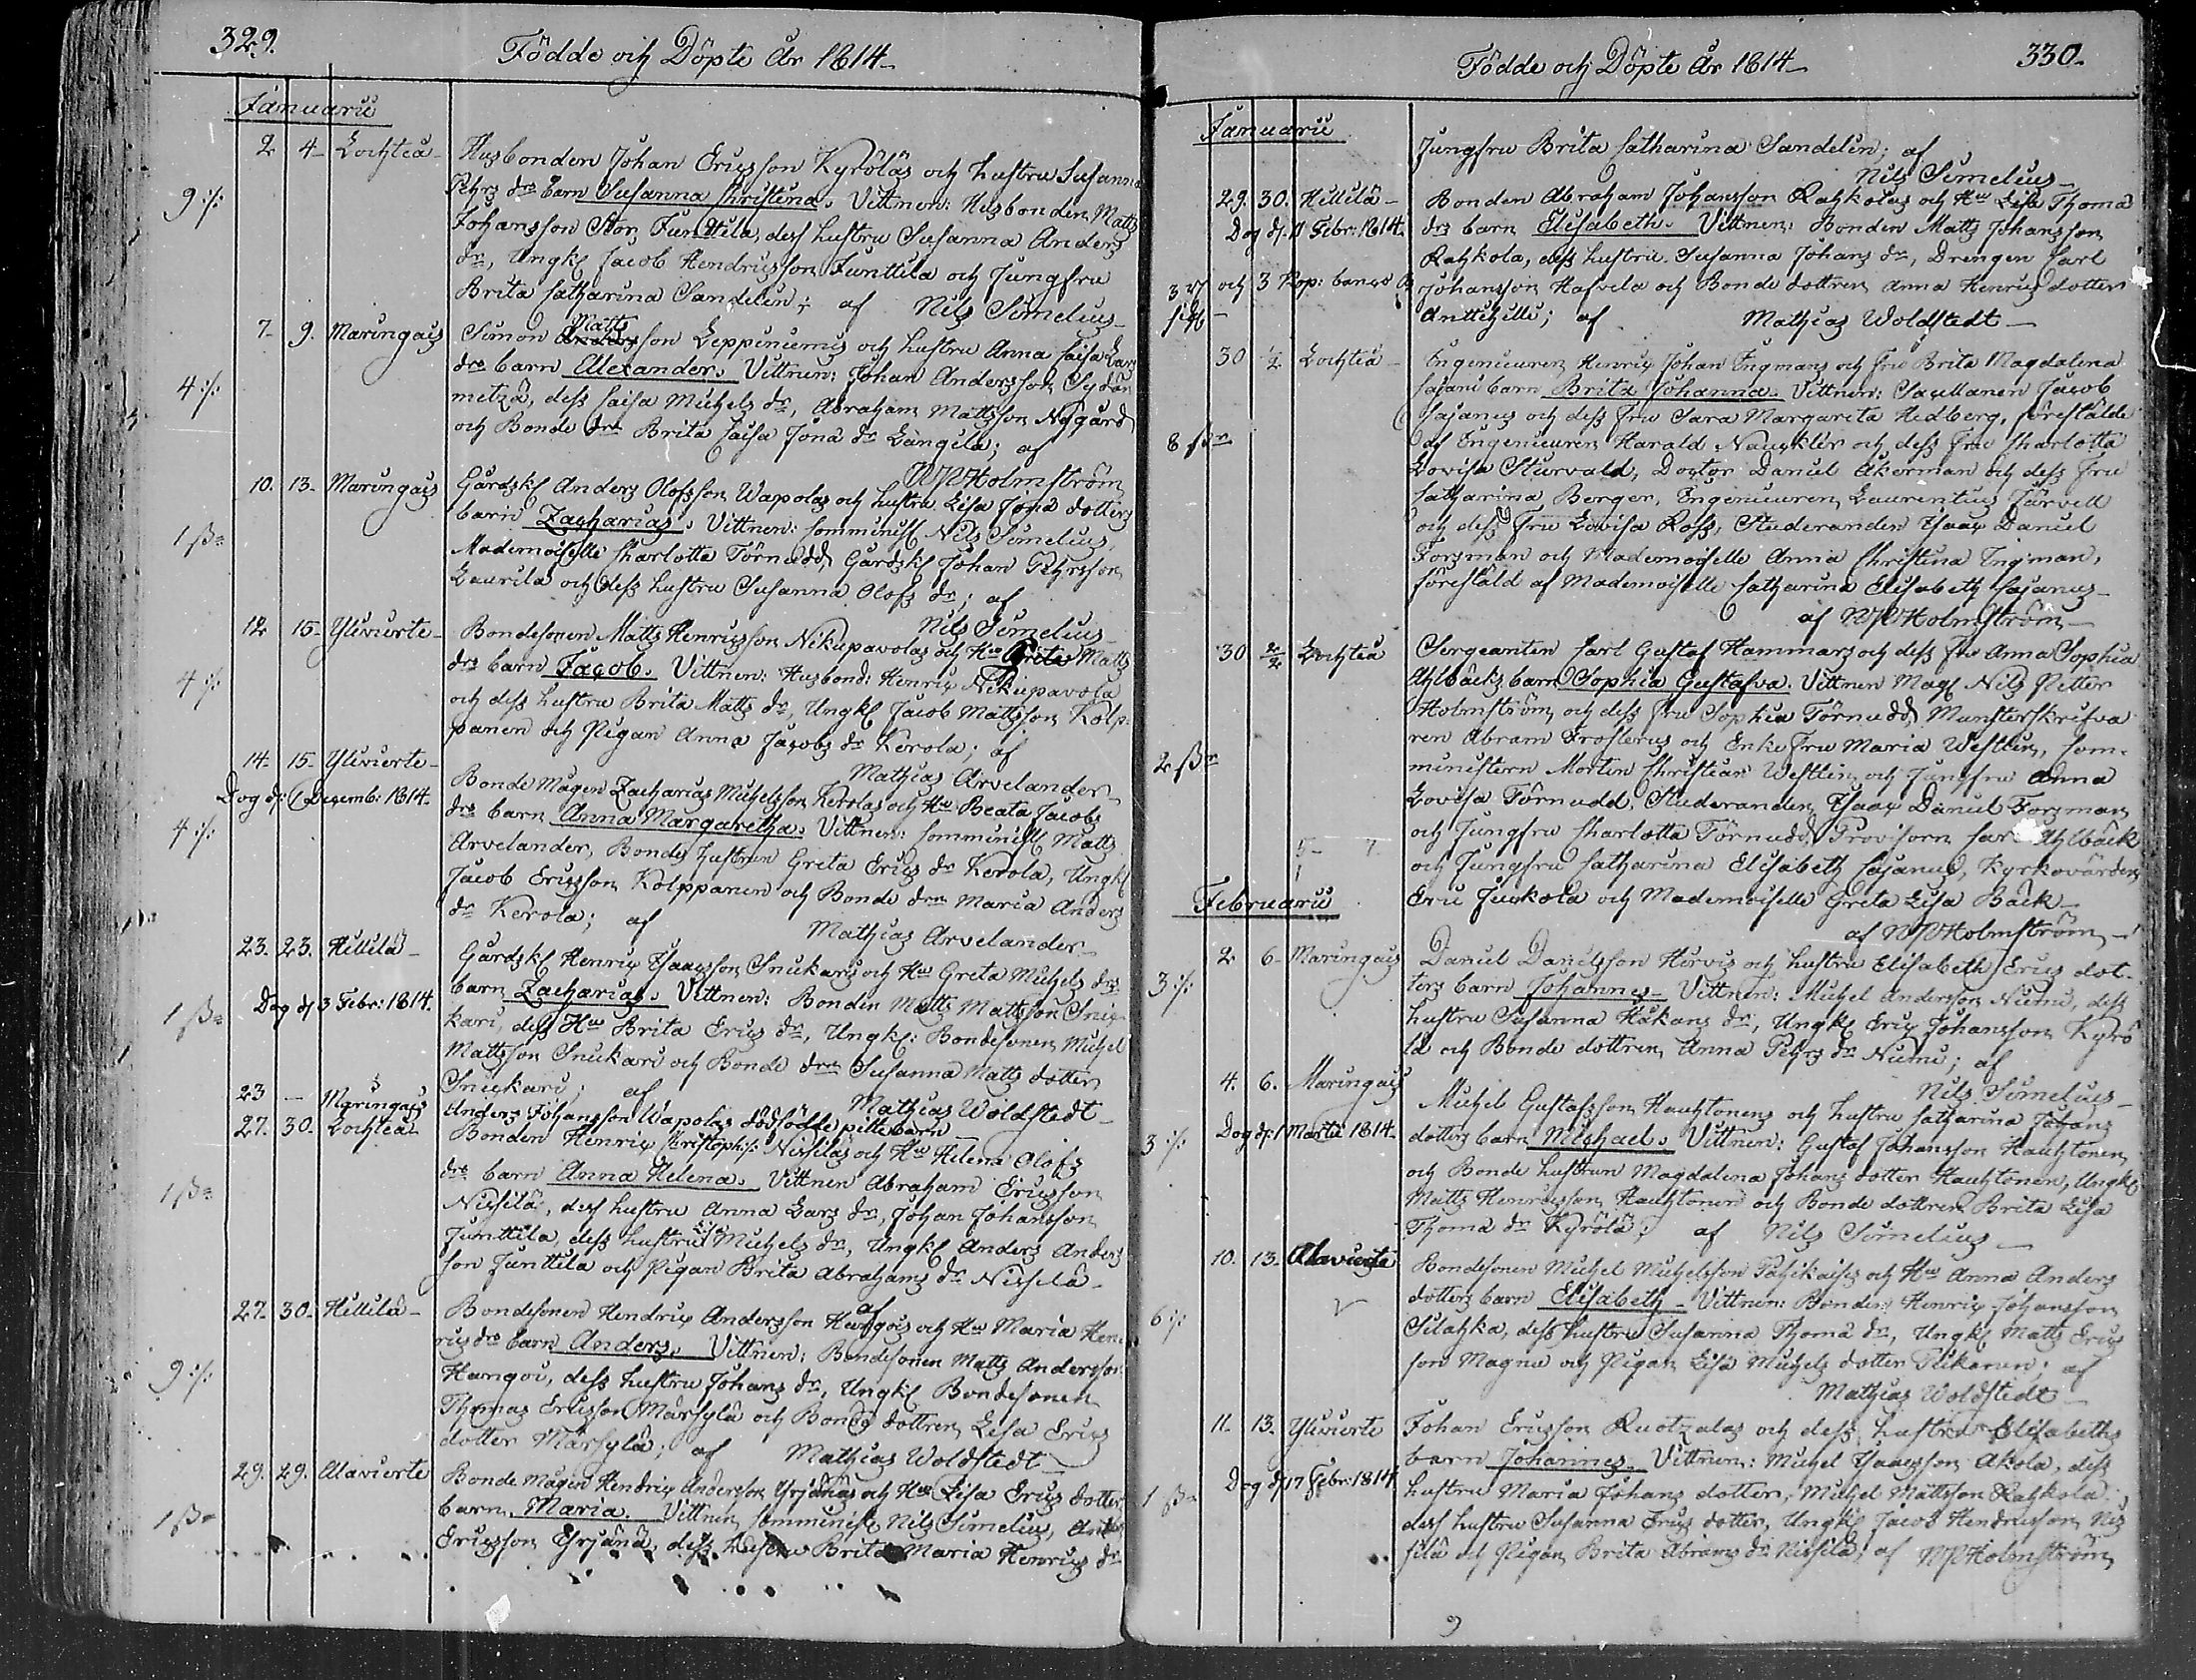 329.
Födde och Döpte år 1814
Januarii
2 4 Lochteå Husbonden Johan Ericsson Kyröläs och hustru Susanna
9 :/: Pehrs drs barn Susanna Christina. Vittnen: Husbonden Matts
Johansson Stor Junttila, dess hustru Susanna Anders
dr, Ungk: Jacob Hendricsson Junttila och Jungfru
Brita Catharina Sandelin; af Nils Simelius
7 9. Maringais Simon Matts son Leppiniemis och hustru Anna Caisa Lars
4 :/: drs barn Alexander. Vittnen: Johan Andersson Sydän
metzä, dess Caisa Michels dr, Abraham Mattsson Nygård
och Bonde dr Brita Caisa Jona dr Längilä; af
NPHolmström
10. 13 Maringais Gårdsk: Anders Olofsson Wapolas och hustru Lisa Jona dotters
1 ß barn Zacharias. Vittnen: Comminist: Nils Simelius,
Mademoiselle Charlotta Törnudd, Gårdsk: Johan Pehrsson
Laurila och dess hustru Susanna Olofs dr; af
Nils Simelius
12 15 Ylivierte Bondesonen Matts Henricsson Nikupavolas och Hu Brita Matts
4 :/: drs barn Jacob. Vittnen: Husbond: Henric Nikupavola
och dess hustru Brita Matts dr, Ungk: Jacob Mattsson Kolp
panen och Pigan Anna Jacobs dr Kerola; af
Mathias Arvelander
14 15 Ylivierte Bonde Mågen Zacharias Michelsson Kerolas och Hu Beata Jacobs
Dog d: Decemb: 1814.
4 :/: drs barn Anna Margaretha. Vittnen: Comminist: Matts
Arvelander, Bonde hustrun Greta Erics dr Kerola, Ungk:
Jacob Ericsson Kolppanen och Bonde drn Maria Anders
dr Kerola; af Mathias Arvelander
23. 23. Hillilä Gårdsk: Henric Isaacsson Snickars och Hu Greta Michels drs
1 ß Dog d 3 Febr: 1814. barn Zacharias. Vittnen: Bonden Matts Mattsson Snic
kari, dess Hu Brita Erics dr, Ungk: Bondesonen Michel
Mattsson Snickari och Bonde drn Susanna Matts dotter
Snickari; af Mathias Woldstedt
23 — Maringais Anders Johansson Wapolas dödfödde pilte barn
27. 30. Lochteå Bonden Henric Christoph:s: Nissiläs och Hu Helena Olofs
1 ß drs barn Anna Helena. Vittnen Abraham Ericsson
Nissilä, dess hustru Anna Lars dr, Johan Johansson
Junttila, dess hustru Lisa Michels dr, Ungk: Anders Anders
son Junttila och Pigan Brita Abrahams dr Nissilä
af
27. 30. Hillilä Bondesonen Hendric Andersson Hangois och Hu Maria Hen
9 :/: rics drs barn Anders. Vittnen: Bondesonen Matts Andersson
Hangoi, dess hustru Johans dr, Ungk: Bondesonen
Thomas Ericsson Märsylä och Bonde dottren Lisa Erics
dotter Märsylä; af Mathias Woldstedt
29. 29. Alavierte Bonde Mågen Hendric Andersson Yrjänäs och Hu Lisa Erics dotters
1 ß barn Maria. Vittnen Comminist: Nils Simelius, Anders
Ericsson Yrjänä, dess hustru Brita Maria Henrics dr
330
Födde och Döpte år 1814
Januarii
Jungfru Brita Catharina Sandelin; af
Nils Simelius
29. 30. Hillilä Bonden Abraham Johansson Rahkolas och Hu Lisa Thomæ
Dog d: 11 Febr: 1814. drs barn Elisabeth. Vittnen: Bonden Matts Johansson
Rahkola, dess hustru Susanna Johans dr, Drengen Carl
och 3 Kop: banco Johansson Hafvela och Bonde dottren Anna Henrics dotter
Anttihilli; af Mathias Woldstedt
30 ½ Lochteå Ingenieuren Henric Johan Ingmans och Fru Brita Magdalena
Cajani barn Brita Johanna. Vittnen: Sacellanen Jacob
Cajanus och dess fru Sara Margareta Hedberg, förestälde
8 af Ingenieuren Harald Nauckler och dess Fru Charlotta
Lovisa Sturvald, Doctor Daniel Åkerman och dess fru
Catharina Berger, Ingenieuren Laurentius Järvell
och dess Fru Lovisa Ross, Studeranden Isaac Daniel
Forsman och Mademoiselle Anna Christina Ingman,
förestäld af Mademoiselle Catharina Elisabeth Cajanus
af NPHolmström
30 2/2 Lochteå Sergeanten Carl Gustaf Hammars och dess Fru Anna Sophia
Ahlbäcks barn Sophia Gustafva. Vittnen Mag: Nils Petter
Holmström och dess fru Sophia Törnudd, Munsterskrifva
ren Abram Frosterus och Enke Fru Maria Westlin, Com-
2 ß ministern Morten Christian Westlin och Jungfru Anna
Lovisa Törnudd, Studeranden Isaac Daniel Forsman
och Jungfru Charlotta Törnudd, Provisorn Carl Ahlbäck
och Jungfru Catharina Elisabeth Cajanus, Kyrkovärden
Eric Juckola och Mademoiselle Greta Lisa Bäck
af NPHolmström
Februarii
2 6 Maringais Daniel Danielsson Hirvis och hustru Elisabeth Erics dot-
3 :/: ters barn Johannes Vittnen: Michel Andersson Niemi, dess
hustru Susanna Håkans dr, Ungk: Eric Johansson Kyrö
lä och Bonde dottren Anna Pehrs dr Niemi; af
Nils Simelius
4. 6. Maringais Michel Gustafsson Hauhtonens och hustru Catharina Johans
3 :/: Dog d: 1 Martii 1814. dotters barn Michael. Vittnen: Gustaf Johansson Hauhtonen
och Bonde hustrun Magdalena Johans dotter Hauhtonen, Ungk:
Matts Henricsson Hauhtonen och Bonde dottren Brita Lisa
Thomæ dr Kyrölä; af Nils Simelius
10. 13. Alavierte Bondesonen Michel Michelsson Pahikais och Hu Anna Anders
6 :/: dotters barn Elisabeth Vittnen: Bonden Henric Johansson
Silahka, dess hustru Susanna Thomæ dr, Ungk: Matts Erics
son Magnu och Pigan Lisa Michels dotter; af
Mathias Woldstedt
11. 13. Ylivierte Johan Ericsson Ruotzalas och dess hustru Elisabeths
Dog d 17 Febr: 1814 barn Johannes. Vittnen: Michel Isaacsson Akola, dess
1 ß hustru Maria Johans dotter, Michel Mattsson Rahkola
dess hustru Susanna Erics dotter, Ungk: Jacob Hendricsson Nis
silä och Pigan Brita Abrams dr Nissilä; af NPHolmström